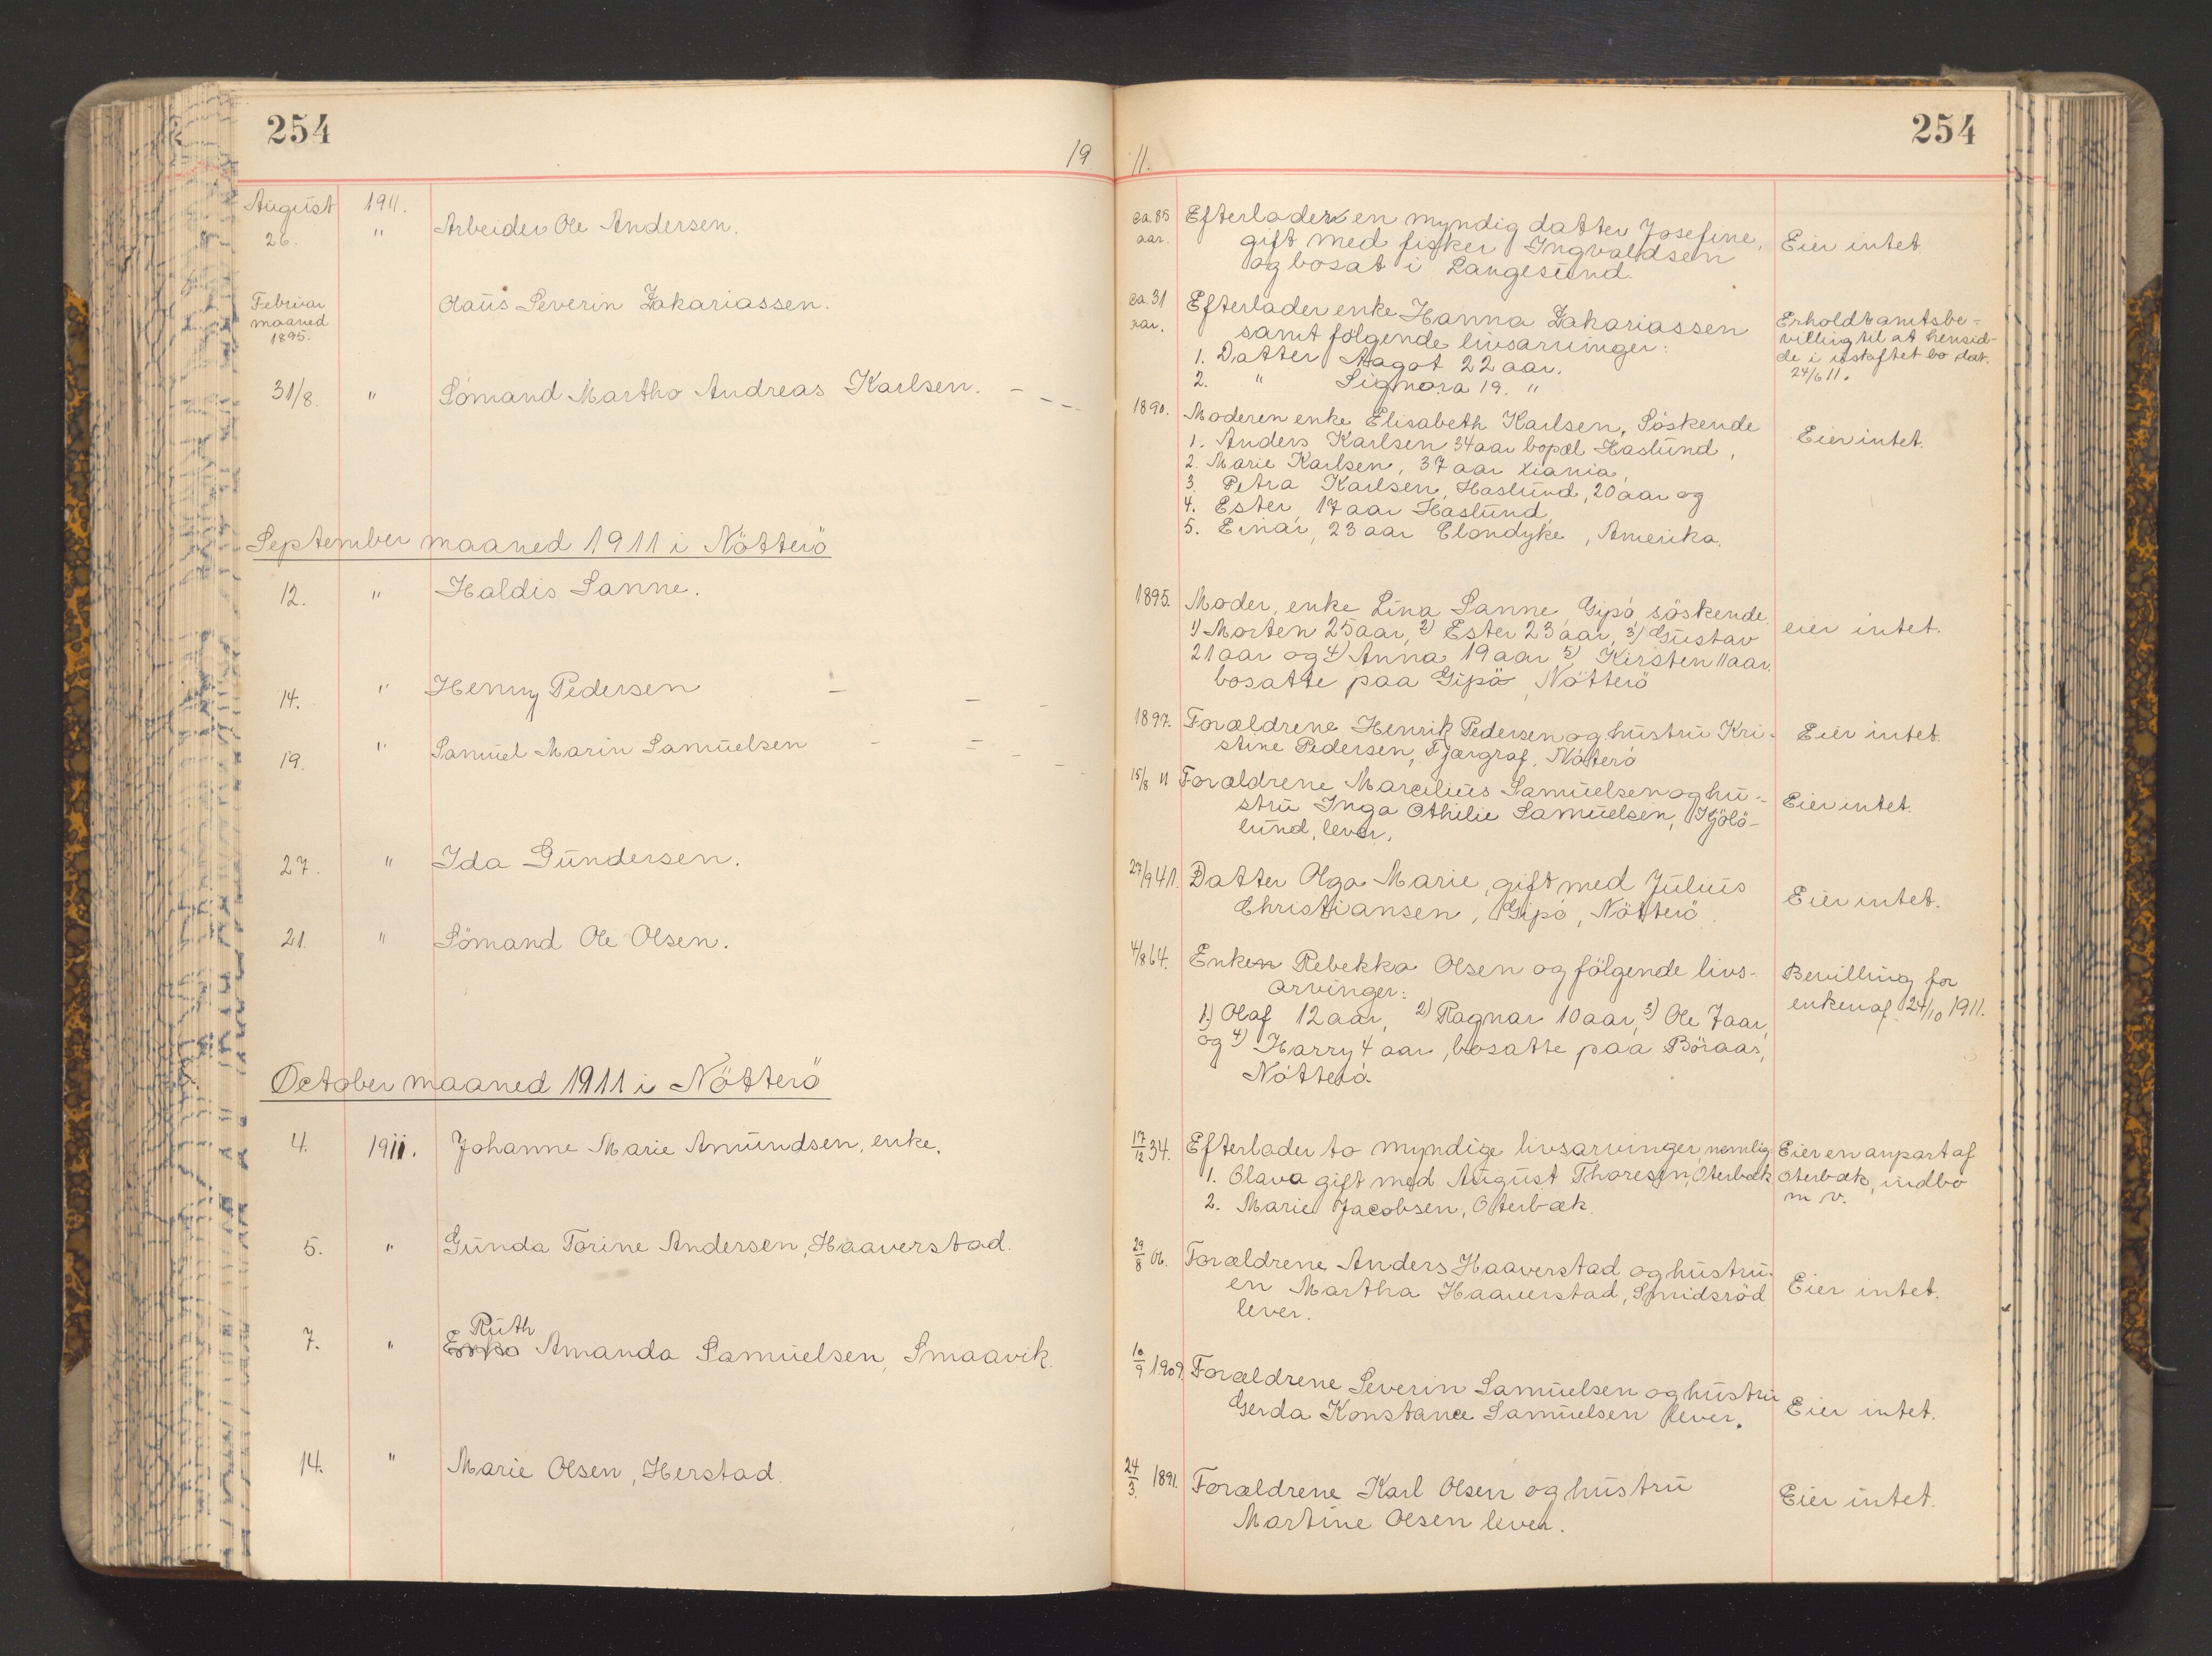 254
19
11.
254
August 1911.
26. " Arbeider Ole Andersen.
ca. 85 aar.
Efterlader en myndig datter Josefine,
gift med fisker Ingvaldsen
og bosat i Langesund.
Eier intet.
Februar
maaned
1895.
Olaus Severin Zakariassen.
ca. 31 aar.
Efterlader enke Hanna Zakariassen
samt følgende livsarvinger:
1. Datter Aagot 22 aar.
2. " Signora 19. "
Erholdt amtsbe-
villing til at hensid-
de i uskiftet bo dat.
24/6 11.
31/8. " Sömand Martho Andreas Karlsen.
1890.
Moderen enke Elisabeth Karlsen, Söskende
1. Anders Karlsen 34 aar bopæl Haslund,
2. Marie Karlsen, 37 aar Xiania,
3. Petra Karlsen, Haslund, 20 aar og
4. Ester, 17 aar Haslund,
5. Einar, 23 aar Clondyke, Amerika.
Eier intet.
September maaned 1911 i Nötterö
12. " Haldis Sanne.
1895.
Moder, enke Lina Sanne, Gipö, söskende
1) Morten 25 aar, 2) Ester 23 aar, 3) Gustav
21 aar og 4) Anna 19 aar 5) Kirsten 11 aar.
bosatte paa Gipö, Nötterö
eier intet.
14. " Henry Pedersen
1897.
Forældrene Henrik Pedersen og hustru Kri-
stine Pedersen, Fjærgraf, Nötterö
Eier intet.
19. " Samuel Marin Samuelsen
15/8 11
Forældrene Marcilius Samuelsen og hu-
stru Inga Othilie Samuelsen, Kjölö-
lund, lever.
Eier intet.
27. " Ida Gundersen.
27/9 41.
Datter Olga Marie, gift med Julius
Christiansen, Gipö, Nötterö.
Eier intet.
21. " Sömand Ole Olsen.
4/8 64.
Enken Rebekka Olsen og fölgende livs-
arvinger:
1.) Olaf 12 aar, 2) Ragnar 10 aar, 3) Ole 7 aar,
og 4) Harry 4 aar, bosatte paa Böraas,
Nötterö.
Bevilling for
enken af 24/10 1911.
October maaned 1911 i Nötterö
4. 1911. Johanne Marie Amundsen, enke.
17/12 34.
Efterlader to myndige livsarvinger, nemlig
1. Olava gift med August Thoresen, Oterbæk
2. Marie Jacobsen, Oterbæk.
Eier en anpart af
Oterbæk, indbo
m v.
5. " Gunda Torine Andersen, Haaverstad.
29/8 06.
Forældrene Anders Haaverstad og hustru-
en Martha Haaverstad, Smidsröd
lever.
Eier intet.
Ruth
7. " Amanda Samuelsen, Smaavik.
10/9 1909.
Forældrene Severin Samuelsen og hustru
Gerda Konstance Samuelsen lever.
Eier intet.
14. " Marie Olsen, Herstad.
24/3. 1891.
Forældrene Karl Olsen og hustru
Martine Olsen lever.
Eier intet.